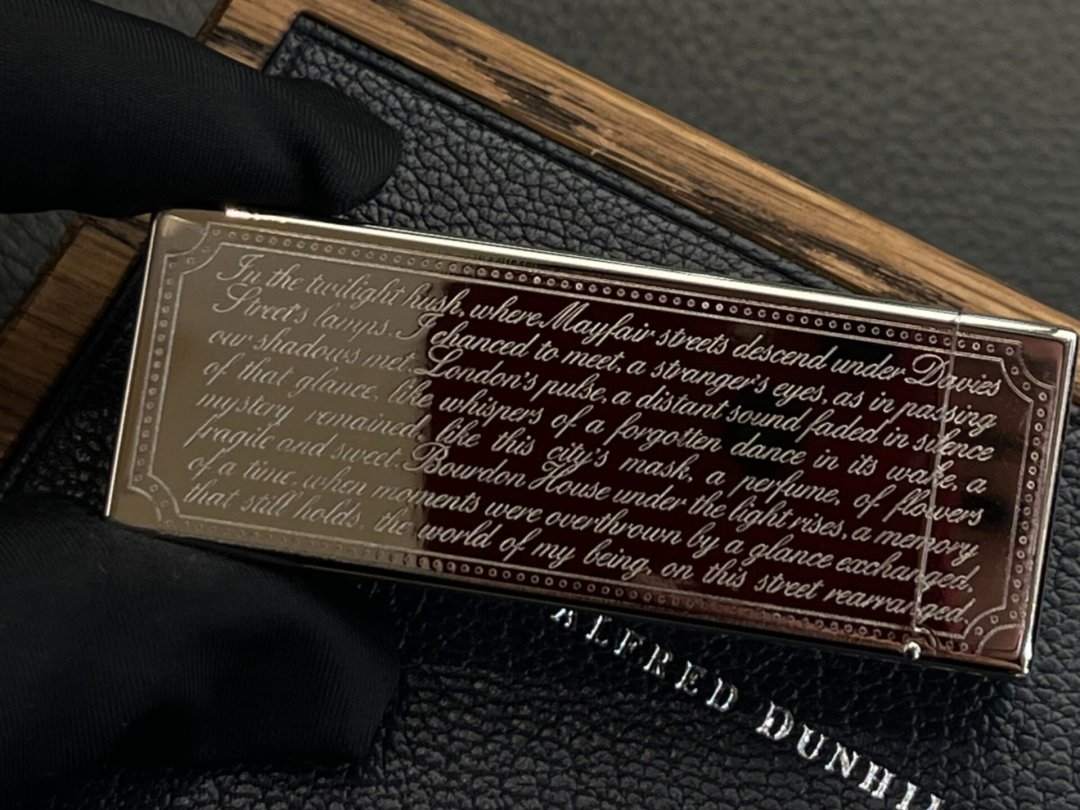 In the twilight hush, where Mayfair streets descend under Davies
Street's lamps. I chanced to meet, a stranger's eyes, as in passing
our shadows met. London's pulse, a distant sound faded in silence
of that glance, like whispers of a forgotten dance in its wake, a
mystery remained, like this city's mask, a perfume, of flowers
fragile and sweet. Bourdon House under the light rises, a memory
of a time, when moments were overthrown by a glance exchanged,
that still holds, the world of my being, on this street rearranged.
ALFRED DUNHI